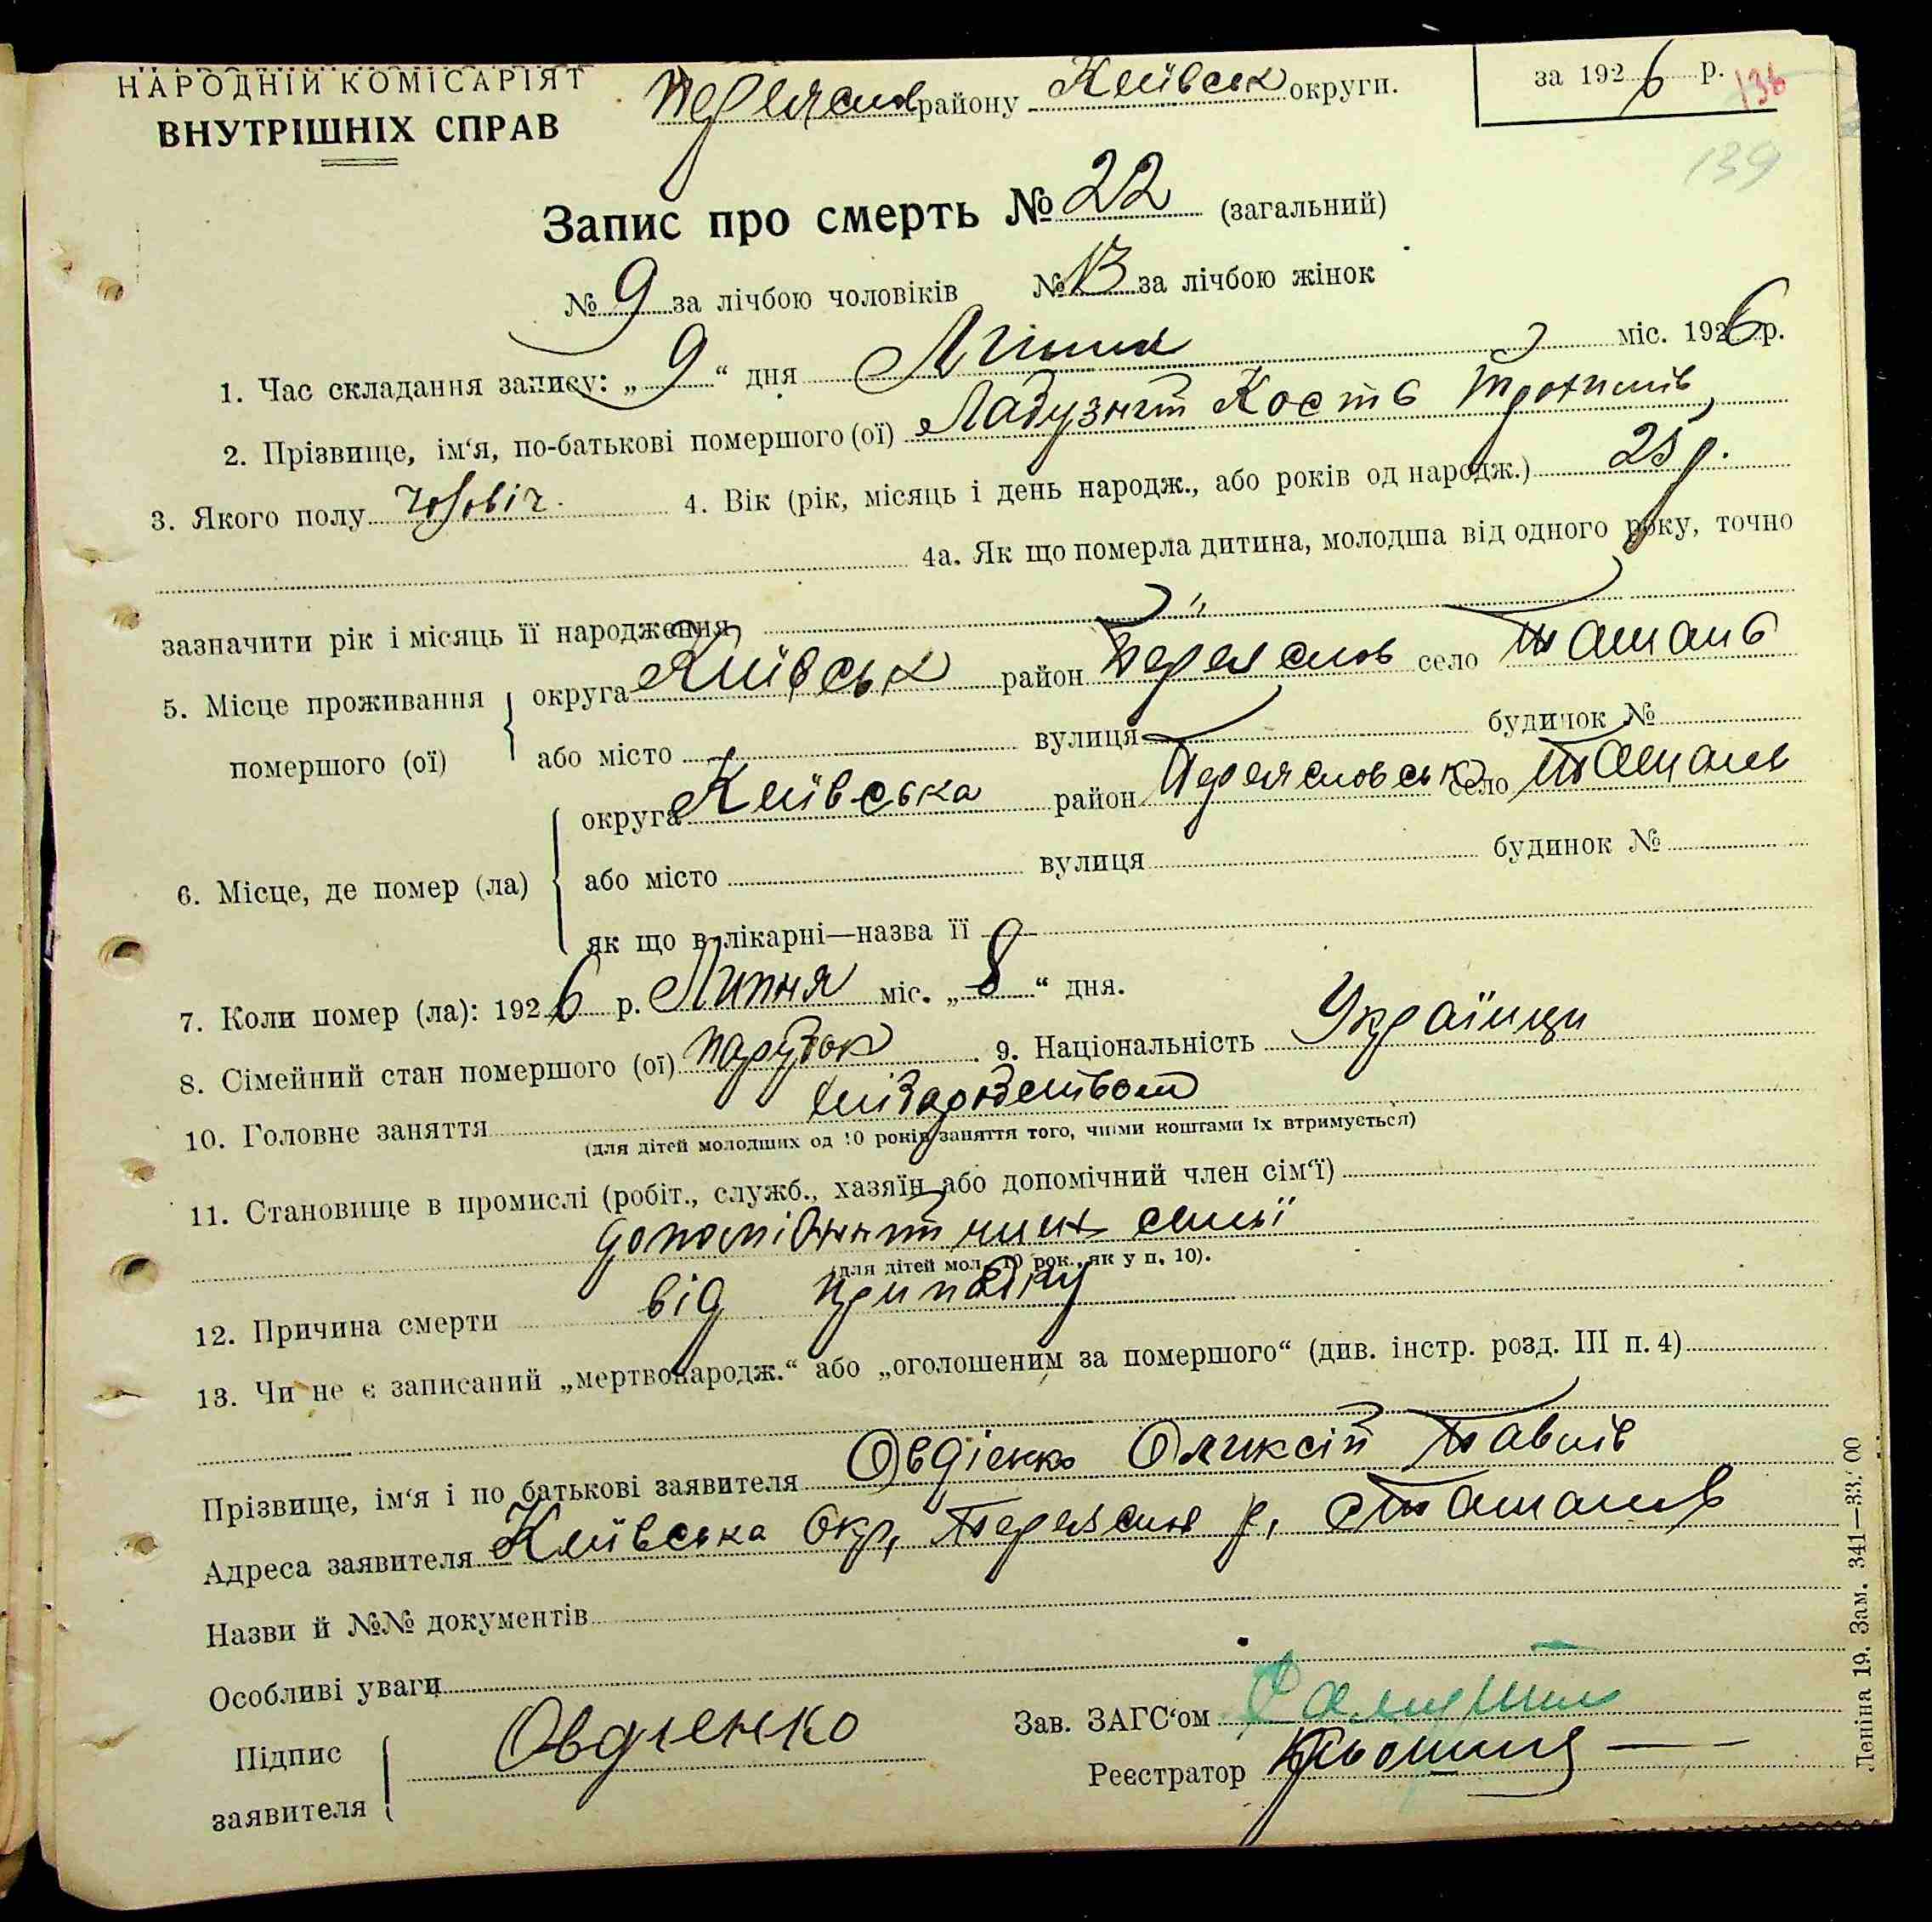 НАРОДНІЙ КОМІСАРІЯТ
ВНУТРІШНІХ СПРАВ
Переяслов району Київськ округи.
за 1926 р. 138
139
Запис про смерть № 22 (загальний)
№ 9 за лічбою чоловіків № 13 за лічбою жінок
1. Час складання запису: „9“ дня Липня міс. 1926 р.
2. Прізвище, ім‘я, по-батькові помершого (ої) Ладузний Кость Трохимів
3. Якого полу чоловіч. 4. Вік (рік, місяць і день народж., або років од народж.) 25 р.
4а. Як що померла дитина, молодша від одного року, точно
зазначити рік і місяць її народження „
5. Місце проживання помершого (ої) округа Київськ район Переяслов село Ташань
або місто вулиця будинок №
6. Місце, де помер (ла) округа Київська район Переясловськ село Ташань
або місто вулиця будинок №
як що в лікарні—назва її
7. Коли помер (ла): 1926 р. Липня міс. „8“ дня.
8. Сімейний стан помершого (ої) парубок 9. Національність Українци
10. Головне заняття
(для дітей молодших од 10 років заняття того, чиїми коштами їх втримується)
11. Становище в промислі (робіт., служб., хазяїн або допомічний член сім‘ї)
допомічний член семьї
(для дітей мол. 10 рок., як у п. 10).
12. Причина смерти від припадку
13. Чи не є записаний „мертвонародж.“ або „оголошеним за помершого“ (див. інстр. розд. III п. 4)
Прізвище, ім‘я і по батькові заявителя Овдієнко Оликсій Павлів
Адреса заявителя Київська Окр, Переяслов р, с Ташань
Назви й №№ документів
Особливі уваги
Підпис заявителя Овдиенко
Зав. ЗАГС‘ом
Реєстратор
Леніна 19. Зам. 341—33.